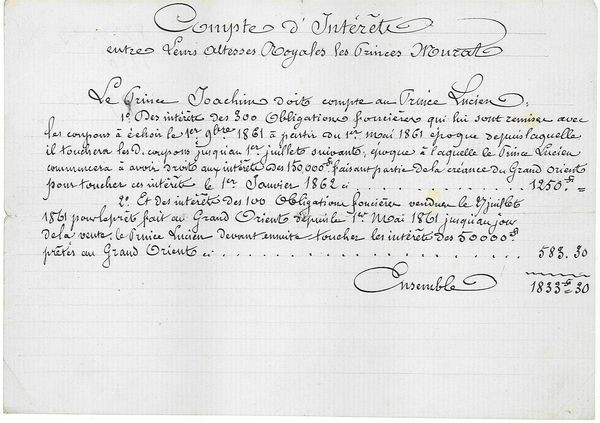 Compte d'Intérêts
entre Leurs Altesses Royales les Princes Murat
Le Prince Joachim doit compte au Prince Lucien,
1º. Des intérêts des 300 Obligation foncière qui lui sont remises avec
les coupons à échoir le 1er 9bre 1861 à partir du 1er mai 1861 époque depuis laquelle
il touchera les d. coupons jusqu'au 1er juillet suivant, époque à laquelle le Prince Lucien
commencera à avoir droit aux intérêts des 150,000 f faisant partie de la créance du Grand Orient
pour toucher ces intérêts le 1er Janvier 1862 ci . . . . . . . . . . . . 1250 "=
2º. Et des intérêts des 100 Obligations foncière vendues le 27 juillet
1861 pour le prêt fait au Grand Orient depuis le 1er Mai 1861 jusqu'au jour
de la vente, le Prince Lucien devant ensuite toucher les intérêts des 50000 f
prêtés au Grand Orient ci . . . . . . . . . . . . . . . . . . 583.30
Ensemble 1833 f=30